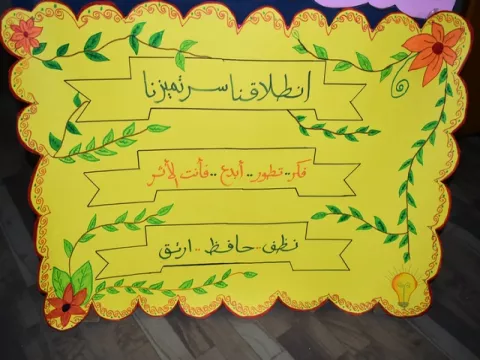 انطلاقنا سر تميزنا
فكر.. تطور.. أبدع.. فأنت الأثر
نظف - حافظ - ارتق